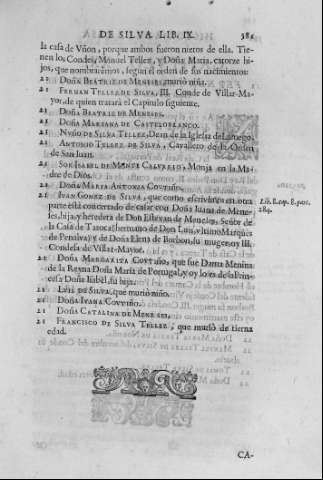 DE SILVA LIB. IX. 381
la casa de Vñon, porque ambos fueron nietos de ella. Tie-
nen los Condes, Manuel Tellez, y Doña Maria, catorze hi-
jos, que nombraremos, segun el orden de sus nacimientos:
21 DOÑA BEATRIZ DE MENESES, murió niña.
21 FERNAN TELLEZ DE SILVA, III. Conde de Villar-Ma-
yor, de quien tratará el Capitulo siguiente.
21 DOÑA BEATRIZ DE MENESES.
21 DOÑA MARIANA DE CASTELOBLANCO.
21 NVÑO DE SILVA TELLEZ, Dean de la Iglesia de Lamego.
21 ANTONIO TELLEZ DE SILVA, Cavallero de la Orden
de San Iuan.
21 SOR ISABEL DE MONTE CALVERIO, Monja en la Ma-
dre de Dios.
21 DOÑA MARIA ANTONIA COVTIÑO.
21 IVAN GOMEZ DE SILVA, que como escrivimos en otra
parte está concertado de casar con Doña Iuana de Mene-
ses, hija, y heredera de Don Estevan de Meneses, Señor de
la Casa de Tarouca, hermano de Don Luis, vltimo Marques
de Penalva, y de Doña Elena de Borbon, su muger,
Condesa de Villar-Mayor.
21 DOÑA MARGARITA COVTIÑO, que fue Dama Menina
de la Reyna Doña Maria de Portugal, y oy lo es de la Prin-
cesa Doña Isabel, su hija.
21 LVIS DE SILVA, que murió niño.
21 DOÑA IVANA COVTIÑO.
21 DOÑA CATALINA DE MENESES.
21 FRANCISCO DE SILVA TELLEZ, que murió de tierna
edad.
CA-